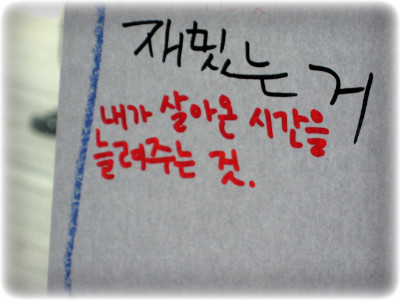 재밌는 거
내가 살아온 시간을
늘려주는 것.